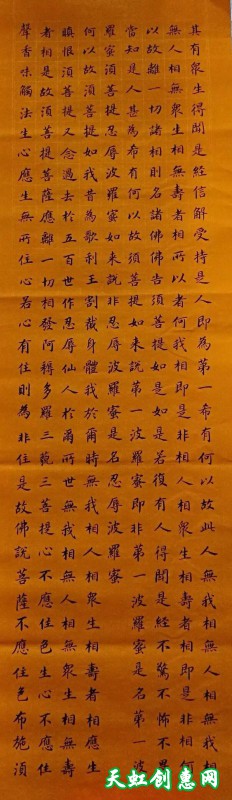 其有眾生得聞是經信解受持是人即為第一希有何以故此人無我相無人相無我相
無人相無眾生相無壽者相所以者何我相即是非相人相眾生相壽者相即是非相何
以故離一切諸相則名諸佛佛告須菩提如是如是若復有人得聞是經不驚不怖不畏
當知是人甚為希有何以故須菩提如來說第一波羅蜜即非第一波羅蜜是名第一波
羅蜜須菩提忍辱波羅蜜如來說非忍辱波羅蜜是名忍辱波羅蜜
何以故須菩提如我昔為歌利王割截身體我於爾時無我相人相眾生相壽者相應生
瞋恨須菩提又念過去於五百世作忍辱仙人於爾所世無我相無人相無眾生相無壽
者相是故須菩提菩薩應離一切相發阿耨多羅三藐三菩提心不應住色生心不應住
聲香味觸法生心應生無所住心若心有住則為非住是故佛說菩薩不應住色布施須
天虹创意网